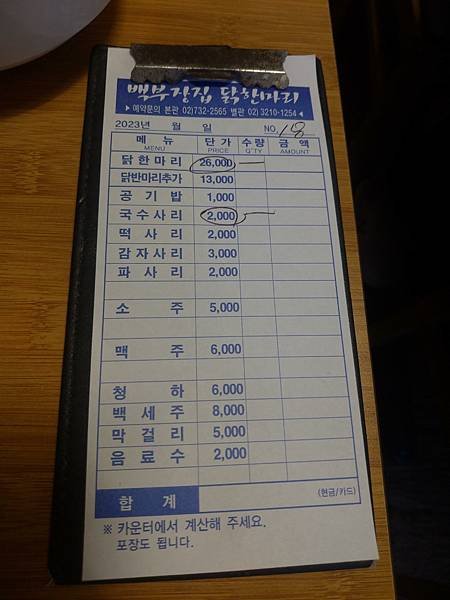 백부장집 닭한마리
▶ 예약문의 본관 02)732-2565 별관 02) 3210-1254 ◀
2023년 월 일 NO. 18
메뉴 단가 수량 금액
MENU PRICE Q'TY AMOUNT
닭한마리 26,000
닭반마리추가 13,000
공기밥 1,000
국수사리 2,000
떡사리 2,000
감자사리 3,000
파사리 2,000
소주 5,000
맥주 6,000
청하 6,000
백세주 8,000
막걸리 5,000
음료수 2,000
합계 (현금/카드)
※ 카운터에서 계산해 주세요.
포장도 됩니다.